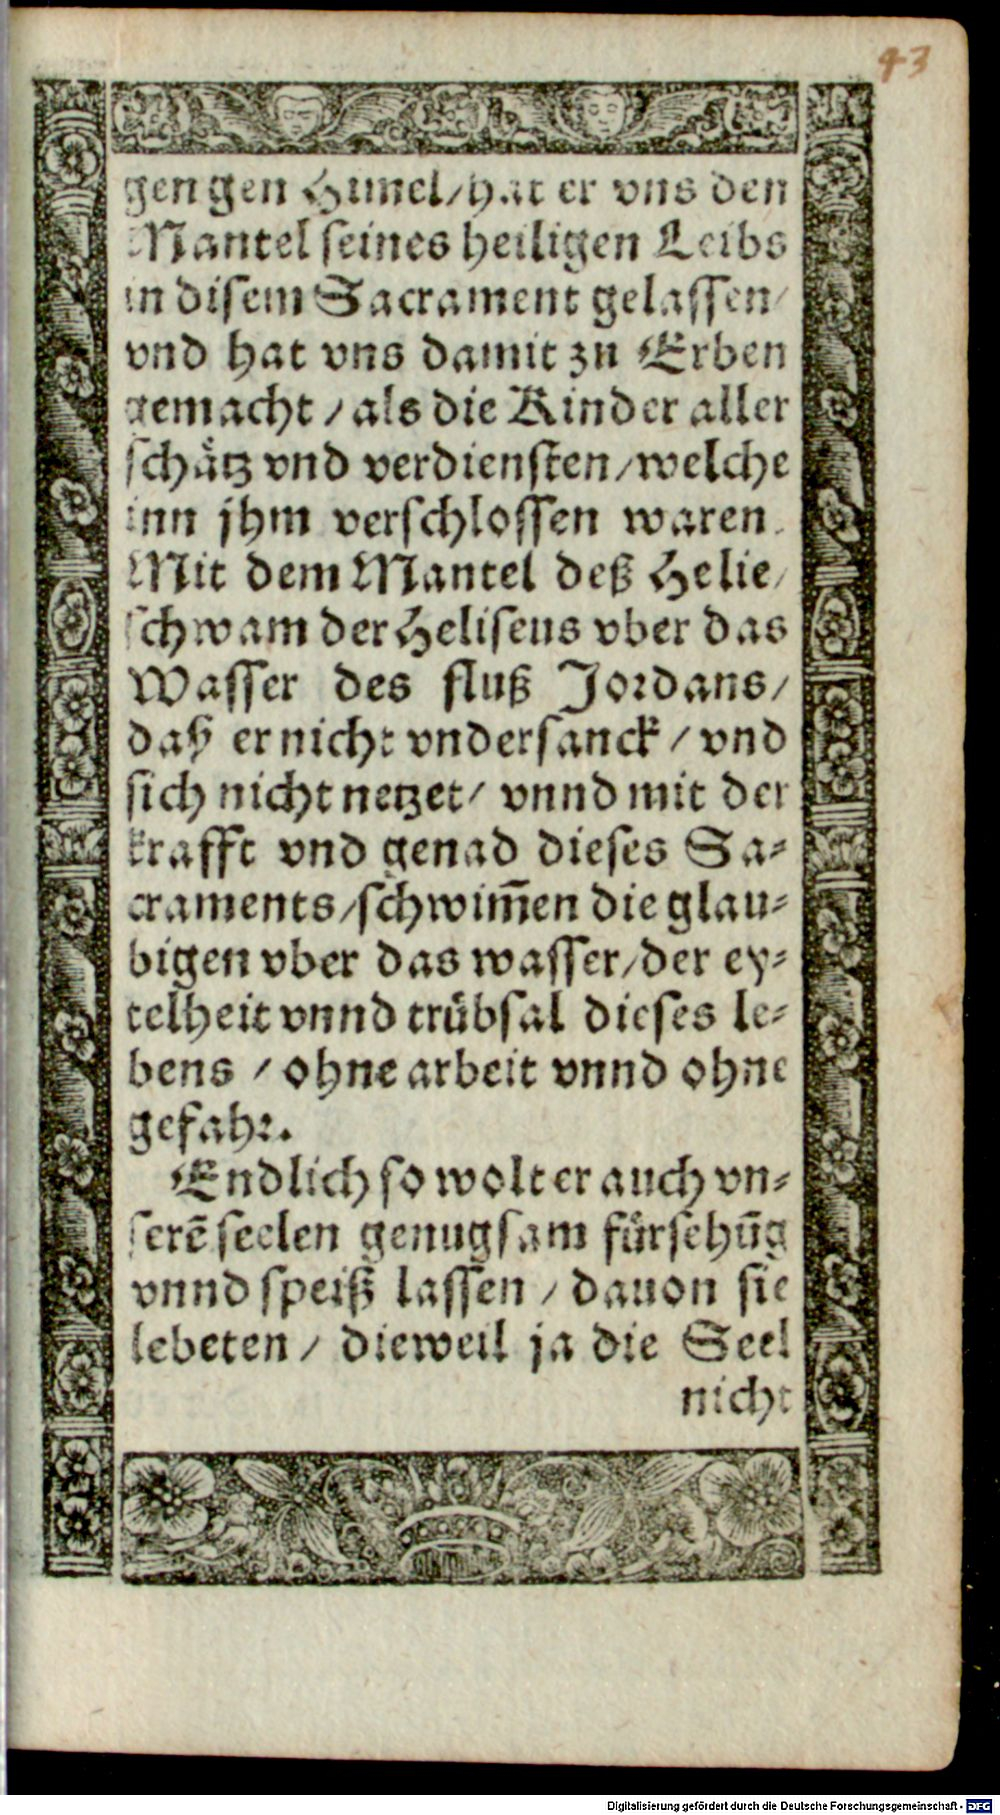 43
gen gen Himel/hat er vns den
Mantel seines heiligen Leibs
in disem Sacrament gelassen/
vnd hat vns damit zu Erben
gemacht/als die Kinder aller
schåtz vnd verdiensten/welche
inn jhm verschlossen waren.
Mit dem Mantel deß Helie/
schwam der Heliseus vber das
Wasser des fluß Jordans/
daß er nicht vndersanck/vnd
sich nicht netzet/vnnd mit der
krafft vnd genad dieses Sa-
craments/schwim̃en die glau-
bigen vber das wasser/der ey-
telheit vnnd trůbsal dieses le-
bens/ohne arbeit vnnd ohne
gefahr.
Endlich so wolt er auch vn-
serẽ seelen genugsam fůrsehũg
vnnd speiß lassen/dauon sie
lebeten/dieweil ja die Seel
nicht
Digitalisierung gefördert durch die Deutsche Forschungsgemeinschaft - DFG